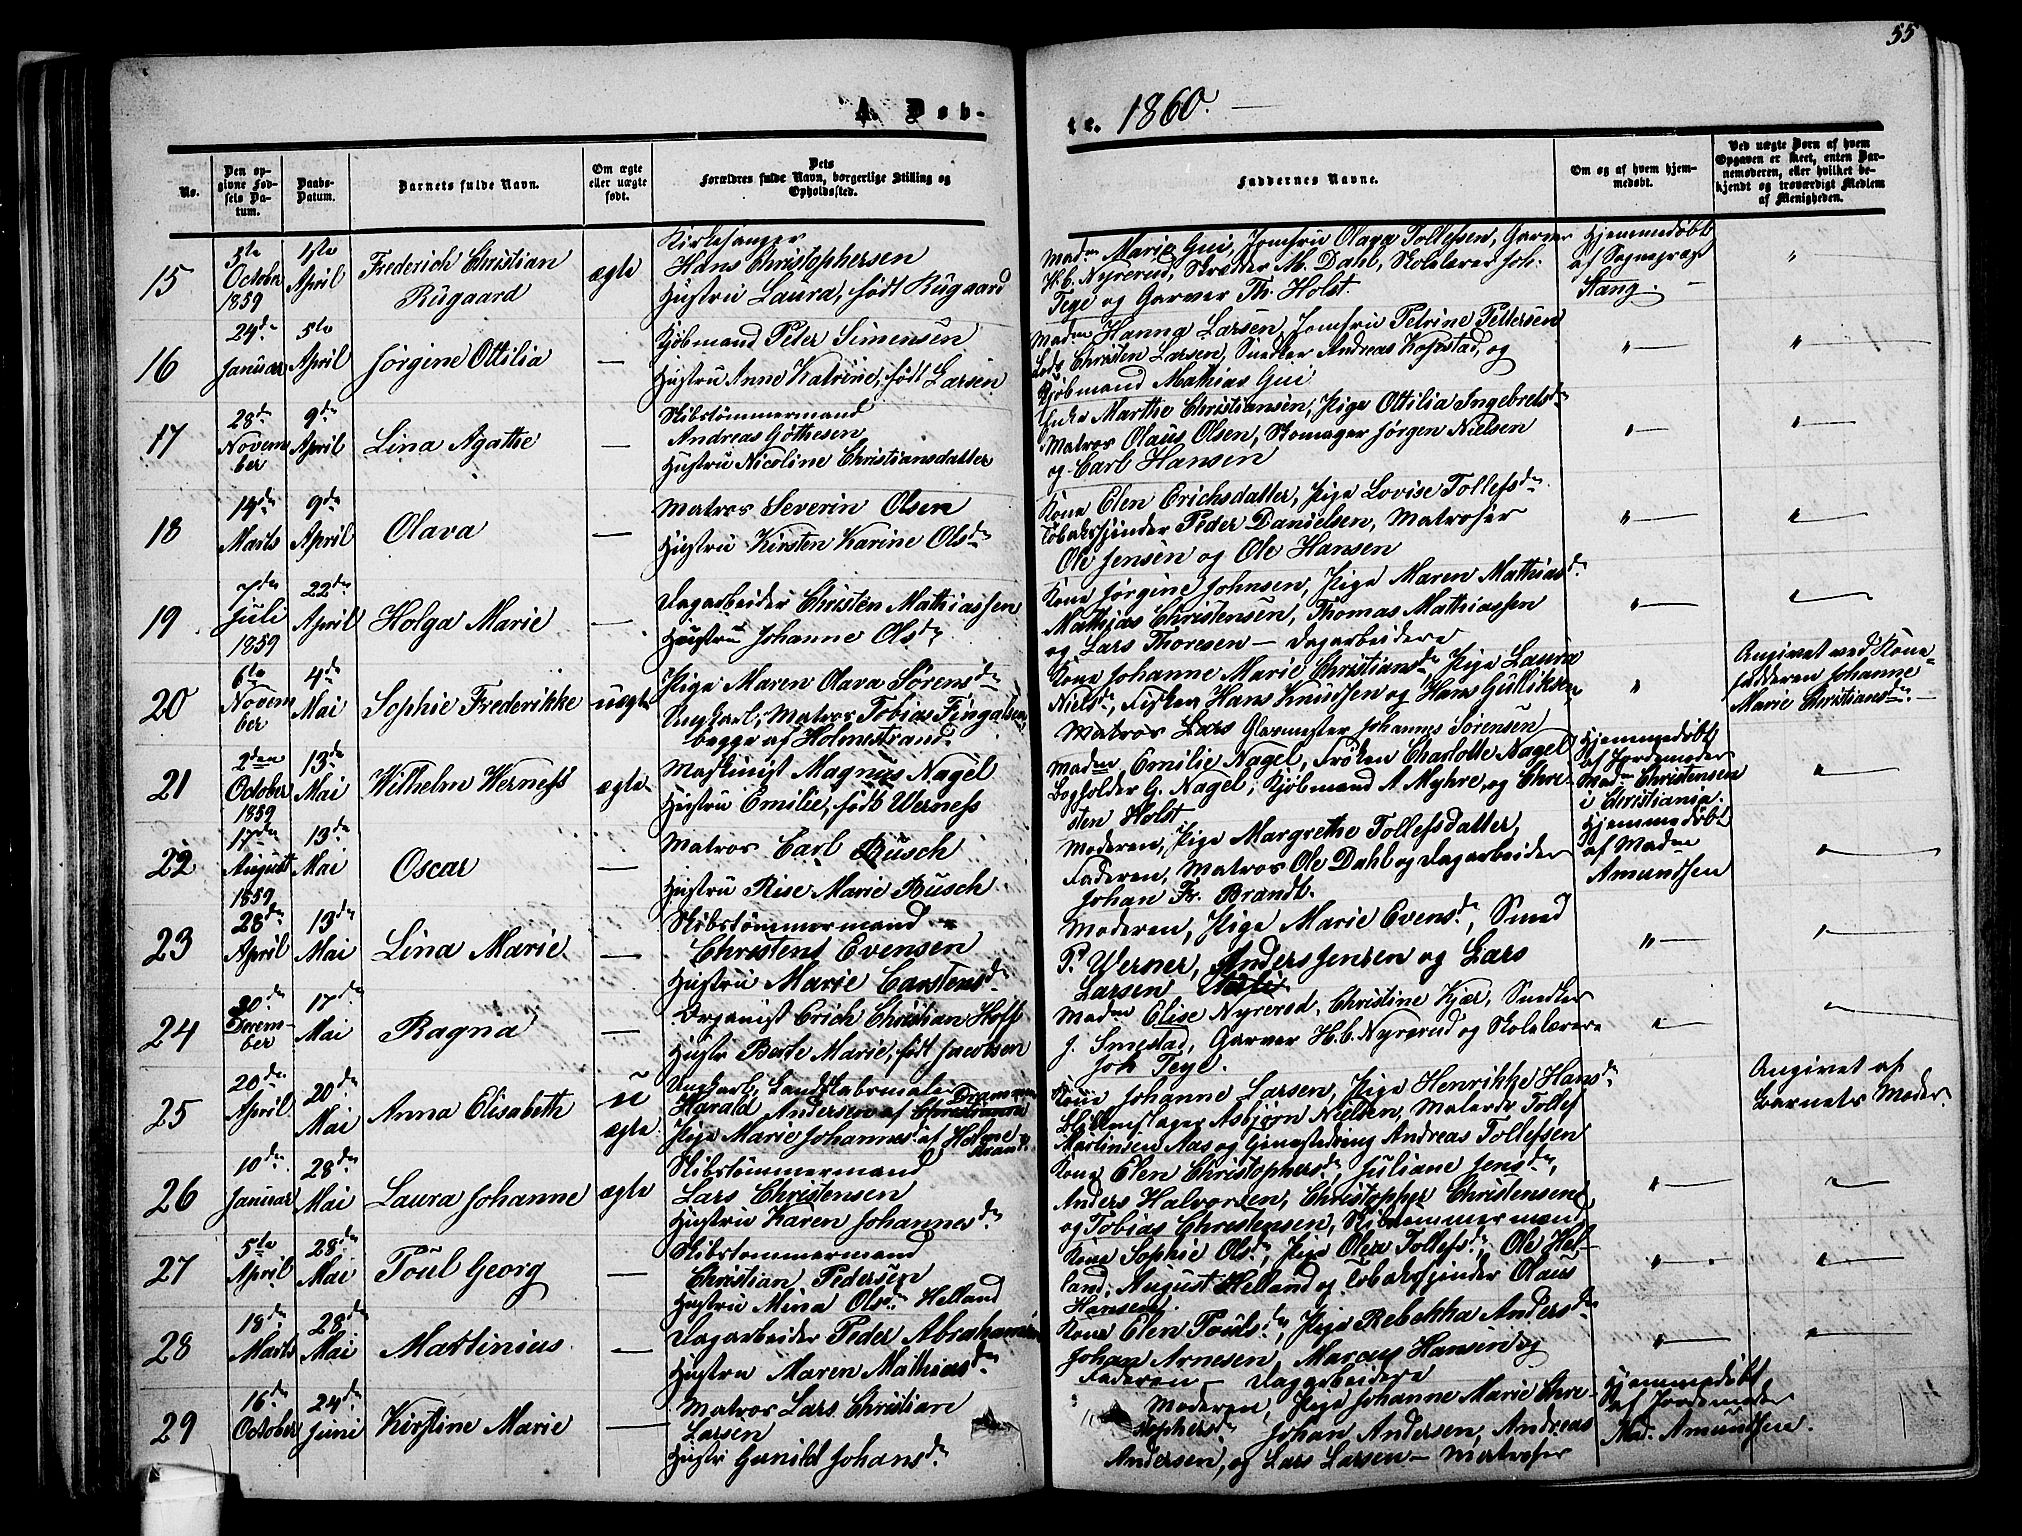 55
A. Døb-
te. 1860.
No.
Den op-
givne Fød-
sels Da-
tum.
Daabs-
Datum.
Barnets fulde Navn.
Om ægte
eller uægte
født.
Dets
Forældres fulde Navn, borgerlige Stilling og
Opholdssted.
Faddernes Navne.
Om og af hvem hjem-
medøbt.
Ved uægte Børn af hvem
Opgaven er skeet, enten Bar-
nemoderen, eller hvilket be-
kjendt og troværdigt Medlem
af Menigheden.
15
5te
October
1859
1ste
April
Frederich Christian
Rugaard
ægte
Kirkesanger
Hans Christophersen
Hustru Laura, født Rugaard
Madm Marie Gui, Jomfru Olava Tollefsen, Garver
H.C. Nyrerud, Skrædder M. Dahl, Skolelærer Joh.
Tege og Garver Th. Holst.
Hjemmedøbt
af Sognepræst
Stang.
"
16
24de
Januar
5te
April
Jørgine Ottilia
—
Kjøbmand Peter Simensen
Hustru Anne Katrine, født Larsen
Madm Hanna Larsen, Jomfru Petrine Pettersen
Lods Christen Larsen, Snedker Andreas Kopstad, og
Kjøbmand Mathias Gui
"
"
17
28de
Novem
ber
9de
April
Lina Agathe
—
Skibstømmermand
Andreas Gøthesen
Hustru Nicoline Christiansdatter
Enke Marthe Christiansen, Pige Ottilia Ingebretsdr
Matros Olaus Olsen, Skomager Jørgen Nielsen
og Carl Hansen
"
"
18
14de
Marts
9de
April
Olava
—
Matros Severin Olsen
Hustru Kirsten Karine Olsdr
Kone Elen Erichsdatter, Pige Lovise Tollefsdr
Tobaksspinder Peder Danielsen, Matroser
Ole Jensen og Ole Hansen
"
"
19
7de
Juli
1859
22de
April
Holga Marie
—
Dagarbeider Christen Mathiassen
Hustru Johanne Olsdr
Kone Jørgine Johnsen, Pige Maren Mathiasdr
Mathias Christensen, Thomas Mathiassen
og Lars Thoresen — Dagarbeidere
"
"
20
6te
Novem
ber
4de
Mai
Sophie Frederikke
uægte
Pige Maren Olava Sørensdr
Ungkarl, Matros Tobias Fingalsen,
begge af Holmestrand.
Kone Johanne Marie Christiansdr Pige Laura
Nielsdr, Fisker Hans Knudsen og Hans Gulliksen,
Matros Lars Glarmester Johannes Sørensen
"
Angivet ved Kone
Fadderen Johanne
Marie Christiansdr.
21
2den
October
1859
13de
Mai
Wilhelm Werness
ægte
Maskinist Magnus Nagel
Hustru Emilie, født Werness
Madm Emilie Nagel, Frøken Charlotte Nagel
Bogholder G. Nagel, Kjøbmand A Myhre, og Chri-
sten Holst
Hjemmedøbt
af Jordemoder
Madm Christensen
i Christiania.
"
22
17de
August
1859
13de
Mai
Oscar
—
Matros Carl Busch
Hustru Rise Marie Busch
Moderen, Pige Margrethe Tollefsdatter,
Faderen, Matros Ole Dahl og Dagarbeider
Johan Fr. Brandt.
Hjemmedøbt
af Madm
Amundsen
"
23
28de
April
13de
Mai
Lina Marie
—
Skibstømmermand
Christent Evensen
Hustru Marie Carstensdr
Moderen, Pige Marie Evensdr, Smed
P. Werner, Anders Jensen og Lars
Larsen
"
"
24
20de
Decem-
ber
17de
Mai
Ragna
—
Organist Erich Christian Hoff
Hustr Berte Marie, født Jacobsen
Madm Elise Nyrerød, Christine Kjær, Snedker
J. Smestad, Garver H.C. Nyrerud og Skolelærer
Joh Tege.
"
"
25
20de
April
20de
Mai
Anna Elisabeth
u
ægte
Ungkarl, Landskabsmaler
Drammen
Harald Andersen af Christiania
Pige Marie Johannesdr af Holme
strand.
Kone Johanne Larsen, Pige Henrikke Hansdr
Blikkenslager Asbjørn Nielsen, Malerdr Tollef
Martinsen Aas og Gjæstgiver Andreas Tollefsen
Angivet af
Barnets Moder.
26
10de
Januar
28de
Mai
Laura Johanne
ægte
Skibstømmermand
Lars Christensen
Hustru Karen Johannesdr
Kone Elen Christophersdr, Juliane Jensdr,
Anders Halvorsen, Christopher Christensen
og Tobias Christensen, Skibtømmermænd
"
"
27
5te
April
28de
Mai
Poul Georg
—
Skibstømmermand
Christian Pedersen
Hustru Mina Olsdr Helland
Kone Sophie Olsdr, Pige Olea Tollefsdr, Ole Hel-
land, August Helland og Tobaksspinder Olaus
Hansen.
"
"
28
18de
Marts
28de
Mai
Martinius
—
Dagarbeider Peder Abrahamsen
Hustru Maren Mathiasdr
Kone Elen Poulsdr, Pige Rebekka Andersdr
Johan Arnesen, Marcus Hansen og
Faderen — Dagarbeidere
"
"
29
16de
October
24de
Juni
Kirstine Marie
—
Matros Lars Christian
Larsen
Hustr Gunild Johansdr
Moderen, Pige Johanne Marie Chri-
stophersdr Johan Andersen, Andreas
Andersen, og Lars Larsen — Matroser
Hjemmedøbt
af Jordemoder
Mad. Amundsen.